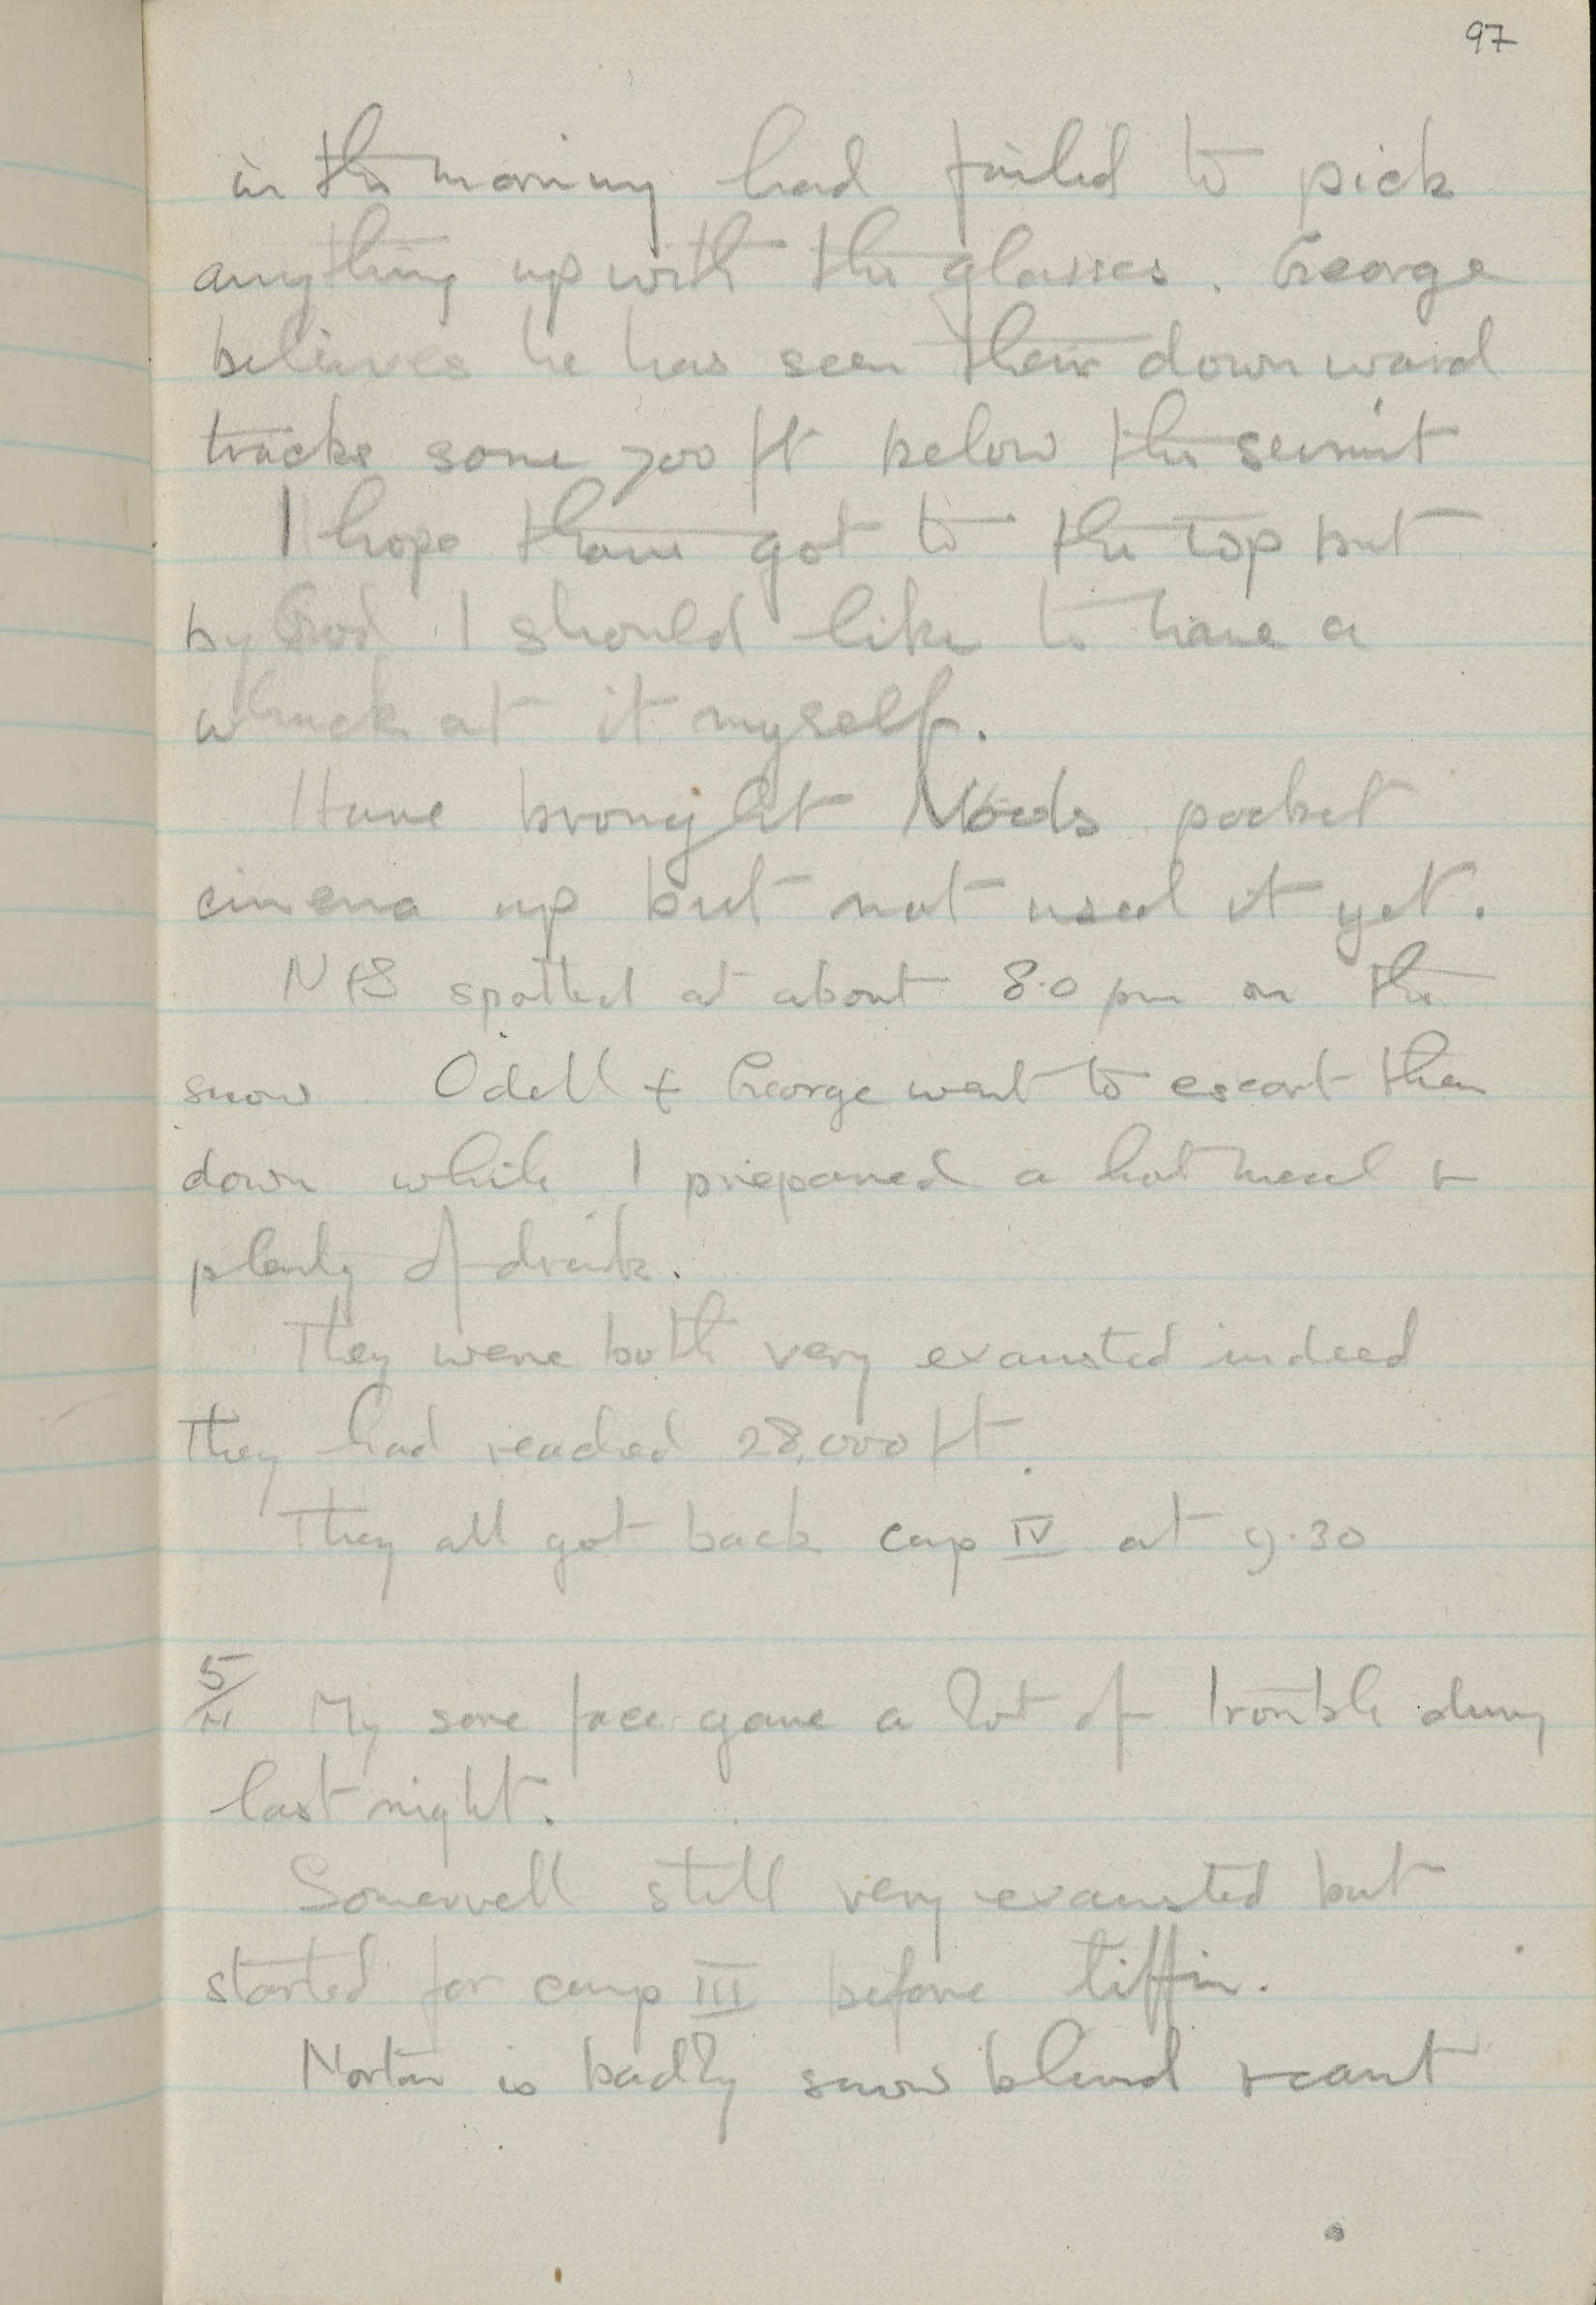 97
in the morning had failed to pick
anything up with the glasses. George
believes he has seen their downward
tracks some 700 ft below the summit
I hope they got to the top but
by God I should like to have a
whack at it myself.
Have brought Noels pocket
cinema up but not used it yet.
N & S spotted at about 8.0 pm on the
snow Odell & George went to escort them
down while I prepared a hot meal &
plenty of drink.
They were both very exausted indeed
They had reached 28,000 ft.
They all got back cap IV at 9.30
5/ My sore face gave a lot of trouble during
last night.
Somervell still very exausted but
started for camp III before tiffin.
Norton is badly snow blind & cant